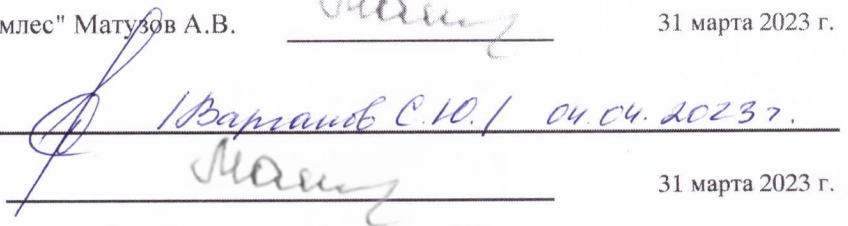 млес" Матузов А.В. 31 марта 2023 г.
/Варганов С.Ю./ 04.04.2023г.
31 марта 2023 г.